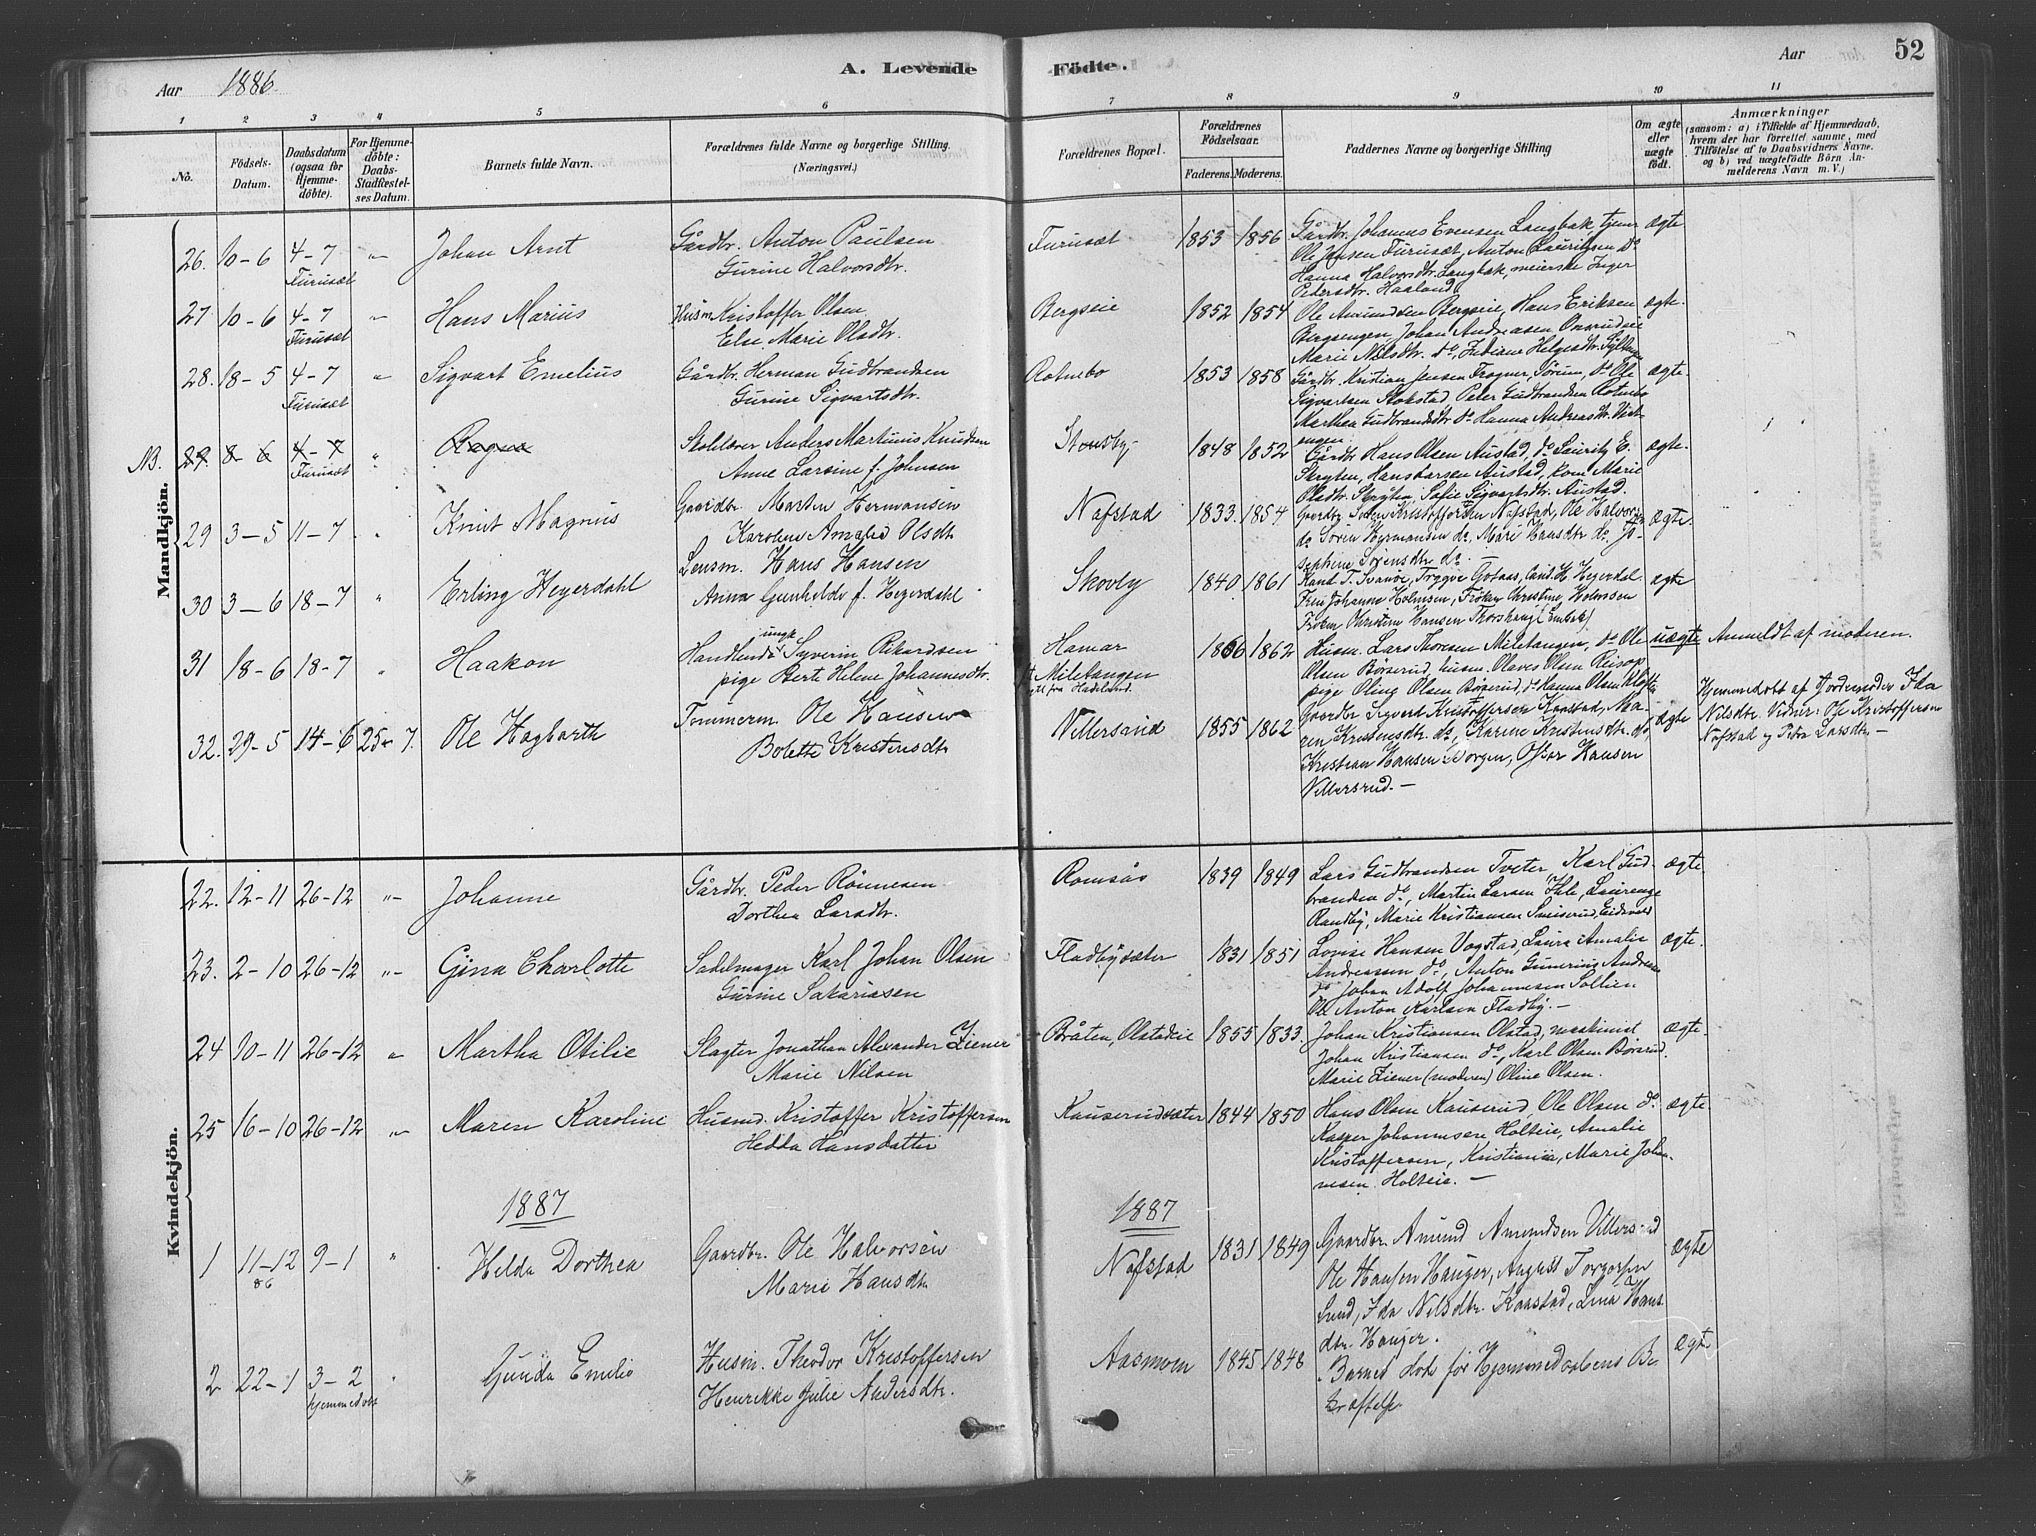 Aar 1886.
A. Levende Födte.
Aar
52
1 2 3 4 5 6 7 8 9 10 11
No.
Födsels-Datum.
Daabsdatum (ogsaa for Hjemme-döbte).
For Hjemme-döbte: Daabs-Stadfæstel-ses Datum.
Barnets fulde Navn.
Forældrenes fulde Navne og borgerlige Stilling.
(Næringsvei.)
Forældrenes Bopæl.
Forældrenes Födselsaar.
Faderens. Moderens.
Faddernes Navne og borgerlige Stilling
Om ægte eller uægte födt.
Anmærkninger
(saasom: a) i Tilfælde af Hjemmedaab, hvem der har forrettet samme, med Tilföielse af to Daabsvidners Navne. og b) ved uægtefödte Börn Anmelderens Navn m. V.)
Mandkjön.
26. 10-6 4-7 Furuset " Johan Arnt Gårdbr. Anton Paulsen
Gurine Halvorsdtr. Furuset 1853 1856 Gårdbr. Johannes Evensen Langbak, tjener ægte
Ole Jensen Furuset, Anton Lauritsen do
Hanna Halvorsdtr. Langbak, meierske Inger
Pedersdtr. Haaland.
27 10-6 4-7 Furuset " Hans Marius Husm Kristoffer Olsen
Else Marie Olsdtr. Bergseie 1852 1854 Ole Amundsen Bergseie, Hans Eriksen ægte.
Bergsengen, Johan Andreasen
Marie Nilsdtr. do,
28. 18-5 4-7 Furuset " Sigvart Emelius Gårdbr. Herman Gudbrandsen
Gurine Sigvartsdtr. Rotnebo 1853 1858 Gårdbr. Kristian Jensen Frogner, Sörum, do Ole ægte.
Sigvartsen Stokstad, Peter Gudbrandsen Rotnebo
Marthea Gudbrandsdtr do Hanna Andreasdtr.
NB. 29. 8-6 4-7 Furuset " Ragna Skolelærer Anders Martinius Knudsen
Anne Larsine f. Johnsen Stensby 1848 1852 Gårdbr Hans Olsen Austad, do Lauritz E. ægte.
Skryten, Hans Larsen Austad, kone Marie
Olsdtr. Skryten, Sofie Sigvartsdtr. Austad.
29 3-5 11-7 " Knut Magnus Gaardbr. Morten Hermansen
Karoline Amalia Olsdtr Nafstad 1833 1854 Gaardbr. Sören Kristoffersen Nafstad, Ole Halvorsen ægte.
do Sören Hermansen do, Mari Hansdtr do, Jo-
sephine Sörensdtr do. —
30 3-6 18-7 " Erling Heyerdahl Lensm. Hans Hansen
Anna Gunhilde f. Heyerdahl Skovly 1840 1861 Kand T. Svanöe, Trygve Gotaas, Cand. H Heyerdal ægte
Fru Johanne Holmsen, Fröken Christine Holmsen
Fröken Christine Hansen Thorshaug
31 18-6 18-7 " Haakon Handlende ungk Syverin Rikardsen
pige Berte Helene Johannesdtr. Hamar
Miletangen 1866 1862 Husm. Lars Thoresen Miletangen, do Ole uægte Anmeldt af moderen.
Olsen Börerud, husm. Olaves Olsen
pige Oline Olsen Börerud, do Hanna Olsen
32. 29-5 14-6 25-7. Ole Hagbarth Tömmerm. Ole Hansen
Bolette Kristensdtr Villersrud 1855 1862 Gaardbr Sigvert Kristoffersen Kaastad, Ma- ægte
ren Kristensdtr. do, Karine Kristensdtr. do,
Kristian Hansen Borgen, Oscar Hansen
Villersrud. —
Hjemmedöbt af Jordemoder Ida
Nilsdtr. Vidner: Ole Kristoffersen
Nafstad og Petra Larsdtr. —
Kvindekjön.
22. 12-11 26-12 " Johanne Gårdbr. Peder Rönnesen
Dorthea Larsdtr. Romsås 1839 1849 Lars Gudbrandsen Tveter, Karl Gud- ægte.
brandsen do, Martin Larsen Ihle, Laurenze
Randby, Marie Kristiansen
23. 2-10 26-12 " Gina Charlotte Sadelmager Karl Johan Olsen
Gurine Sakariasen Fladbysæter 1831 1851 Lovise Hansen Vogstad, Laura Amalie ægte.
Andreassen do, Anton Gunerius Andreasen
do Johan Adolf Johannesen Sollien
Ole Anton Karlsen Fladby. —
24 10-11 26-12 " Martha Otilie Slagter Jonathan Alexander Ziener
Marie Nilsen Bråten, Olstadeie 1855 1833. Johan Kristiansen Olstad, maskinist ægte.
Johan Kristiansen do, Karl Olsen Börsrud.
Marie Ziener (moderen) Oline Olsen.
25 16-10 26-12 " Maren Karoline Husmd. Kristoffer Kristoffersen
Hedda Hansdatter Kauserudsæter 1844 1850 Hans Olsen Kauserud, Ole Olsen do. ægte.
Kasper Johannesen Holteie, Amalie
Kristoffersen, Kristiania, Marie Johan-
nesen Holteie. —
1887 1887
1 11-12 86 9-1 " Helda Dorthea Gaardbr. Ole Halvorsen
Marie Hansdtr Nafstad 1831 1849 Gaardbr. Amund Amundsen Villersrud ægte
Ole Hansen Hauger, August Torgersen
Lund, Ida Nilsdtr. Kaastad, Lina Hans
dtr. Hauger.
2 22-1 3-2 hjemmedöbt " Gunda Emilie Husm. Theodor Kristoffersen
Henrikke Julie Andersdtr. Aasmoen 1845 1848 Barnet döde för Hjemmedaabens Be- ægte
kræftelse